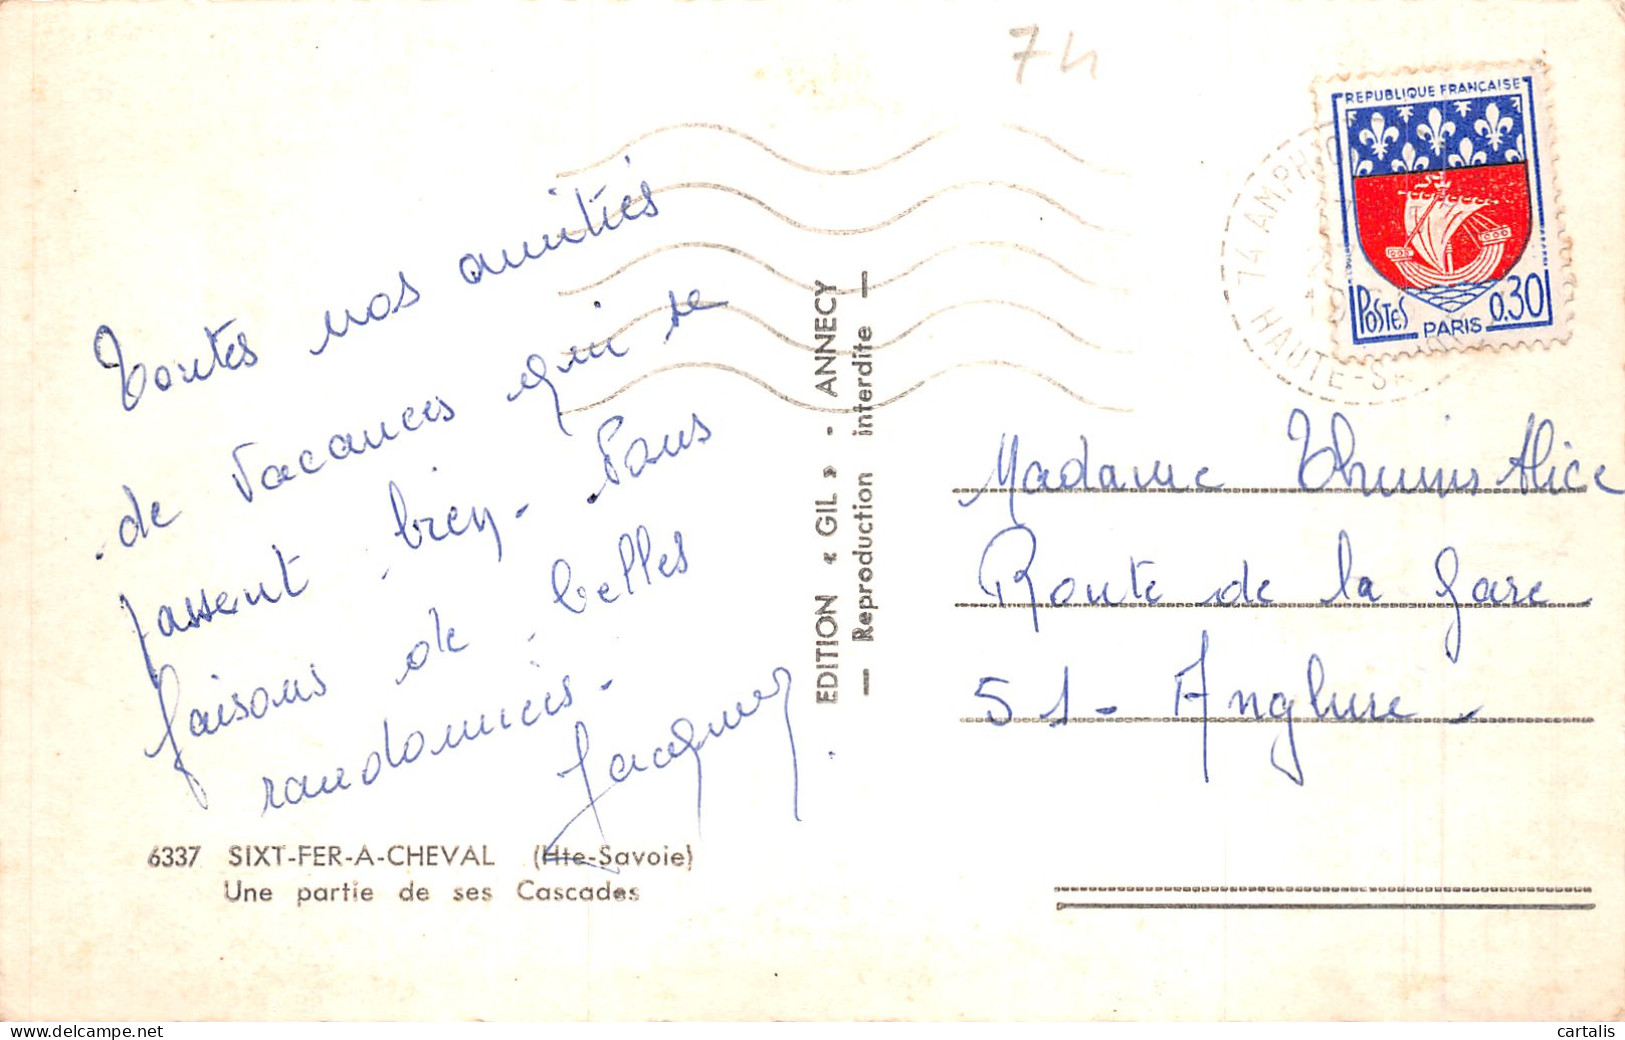 74
REPUBLIQUE FRANÇAISE
POSTES PARIS 0.30
74 AMPHION
HAUTE-SA
Toutes nos amitiés
de vacances qui se
passent bien. Nous
faisons de belles
randonnées.
Jacques
6337 SIXT-FER-A-CHEVAL (Hte-Savoie)
Une partie de ses Cascades
EDITION « GIL » - ANNECY
— Reproduction interdite —
Madame Alice
Route de la Gare
51 - Anglure -
cartalis